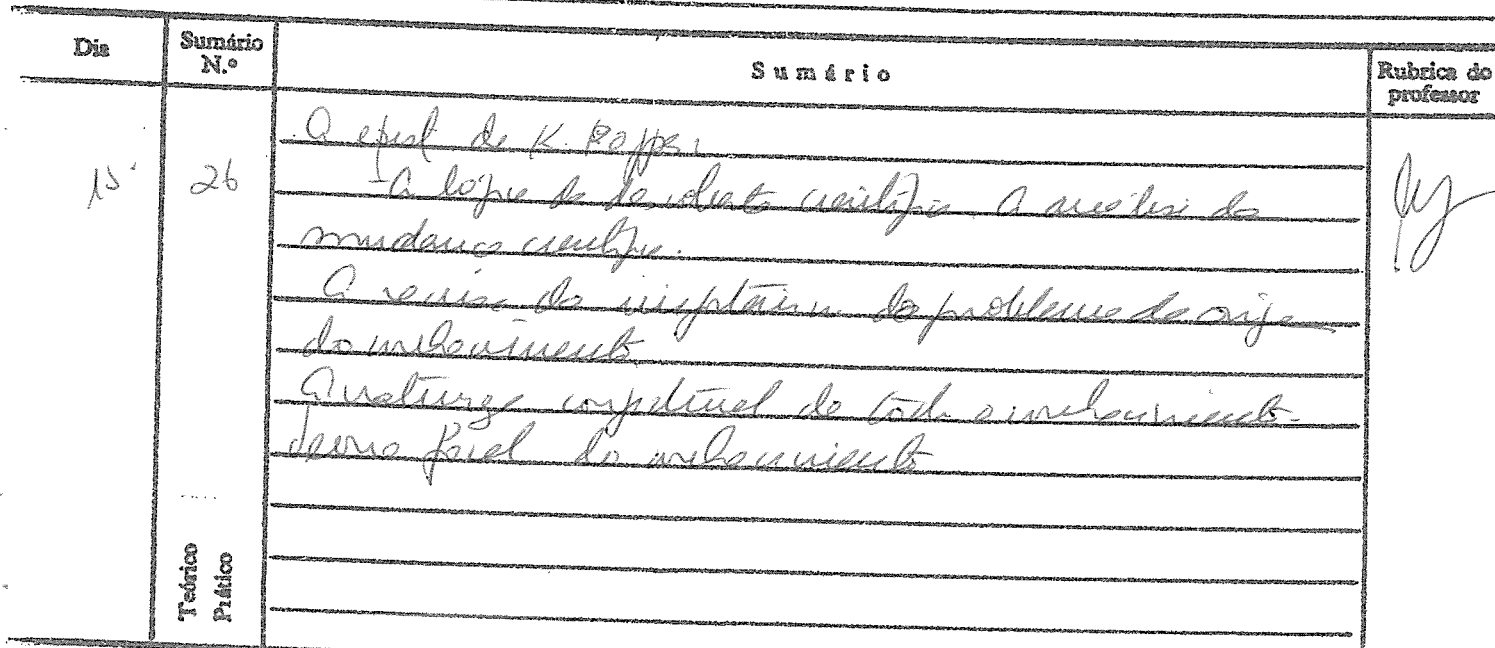 Dia
Sumário N.º
Sumário
Rubrica do professor
15
26
A epist de K. Popper
- A lógica da descoberta científica. A análise da
mudança científica.
A do problema da origem
do conhecimento
A natureza conjectural de todo o conhecimento
do conhecimento
Teórico
Prático